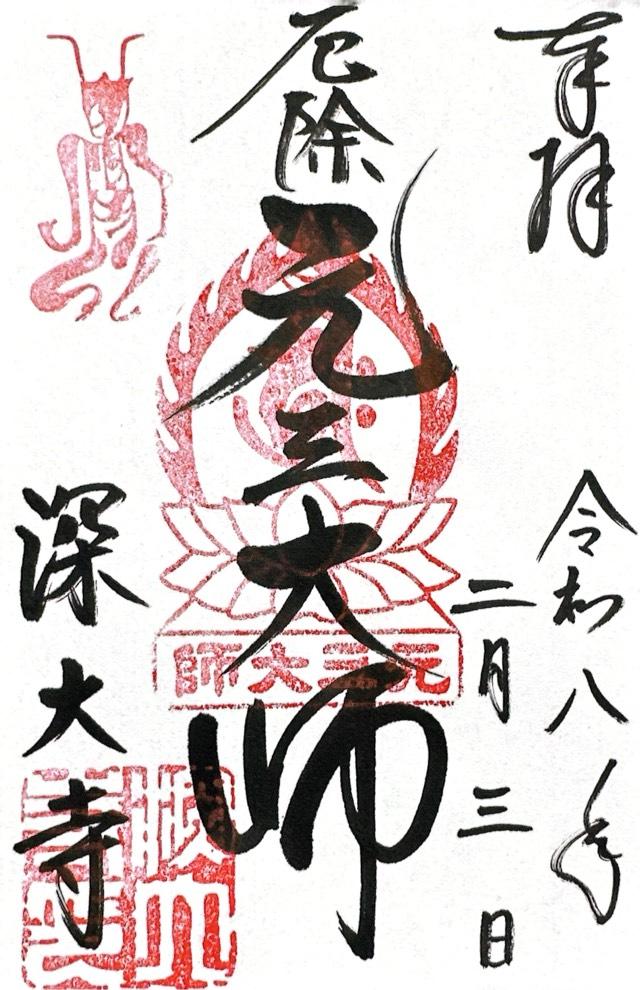 奉拝
令和八年
二月三日
厄除
元三大師
元三大師
深大寺